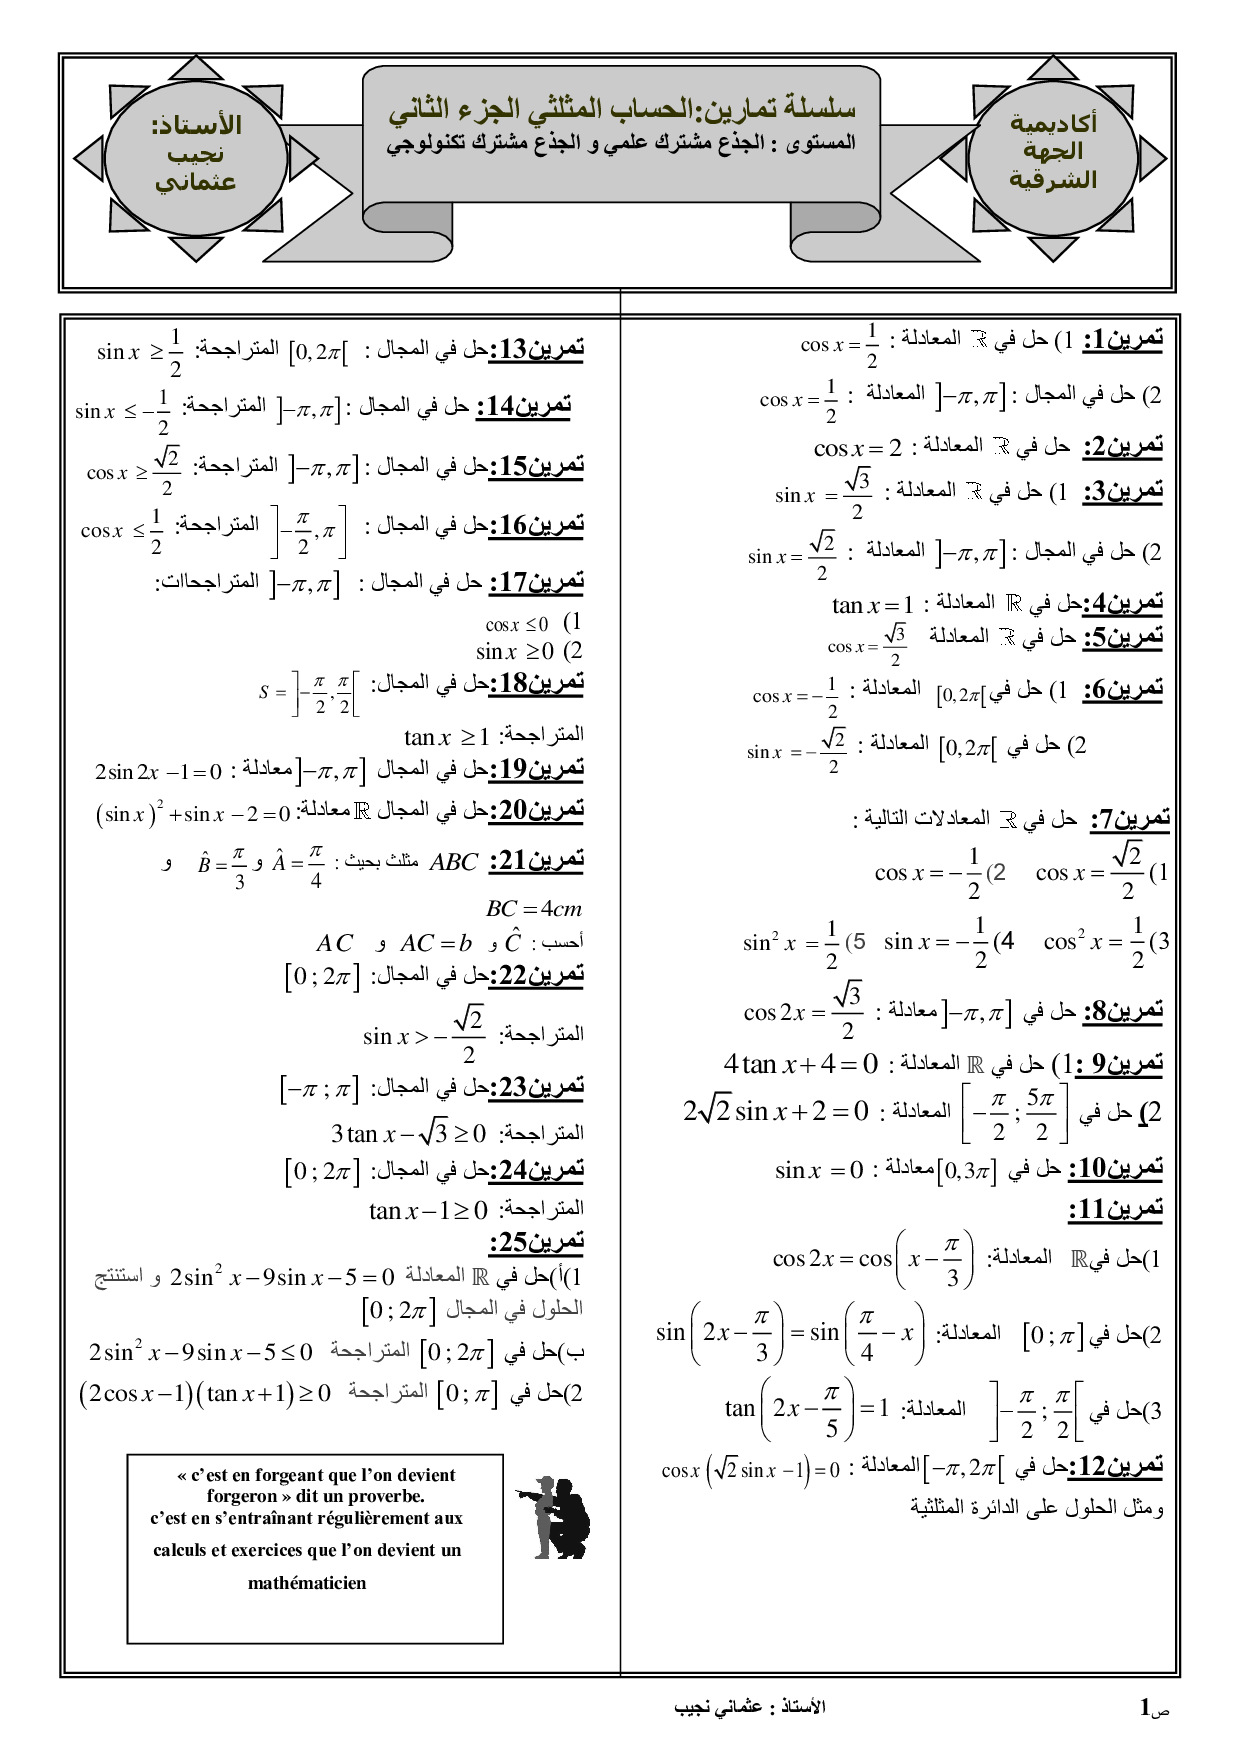 أكاديمية
الجهة
الشرقية
سلسلة تمارين:الحساب المثلثي الجزء الثاني
المستوى : الجذع مشترك علمي و الجذع مشترك تكنولوجي
الأستاذ:
نجيب
عثماني
تمرين1: 1) حل في ℝ المعادلة : cos x = 1/2
2) حل في المجال : ]−π,π] المعادلة : cos x = 1/2
تمرين2: حل في ℝ المعادلة : cos x = 2
تمرين3: 1) حل في ℝ المعادلة : sin x = √3/2
2) حل في المجال : ]−π,π] المعادلة : sin x = √2/2
تمرين4:حل في ℝ المعادلة : tan x = 1
تمرين5: حل في ℝ المعادلة cos x = √3/2
تمرين6: 1) حل في [0,2π[ المعادلة : cos x = −1/2
2) حل في [0,2π[ المعادلة : sin x = −√2/2
تمرين7: حل في ℝ المعادلات التالية :
1) cos x = √2/2 2) cos x = −1/2
3) cos² x = 1/2 4) sin x = −1/2 5) sin² x = 1/2
تمرين8: حل في ]−π,π] معادلة : cos 2x = √3/2
تمرين9 :1) حل في ℝ المعادلة : 4 tan x + 4 = 0
2) حل في [−π/2 ; 5π/2] المعادلة : 2√2 sin x + 2 = 0
تمرين10: حل في [0,3π] معادلة : sin x = 0
تمرين11:
1)حل في ℝ المعادلة: cos 2x = cos(x − π/3)
2)حل في [0 ; π] المعادلة: sin(2x − π/3) = sin(π/4 − x)
3)حل في ]−π/2 ; π/2[ المعادلة: tan(2x − π/5) = 1
تمرين12:حل في [−π,2π[ المعادلة : cos x (√2 sin x − 1) = 0
ومثل الحلول على الدائرة المثلثية
تمرين13:حل في المجال : [0,2π[ المتراجحة: sin x ≥ 1/2
تمرين14: حل في المجال : ]−π,π] المتراجحة: sin x ≤ −1/2
تمرين15:حل في المجال : ]−π,π] المتراجحة: cos x ≥ √2/2
تمرين16:حل في المجال : ]−π/2,π] المتراجحة: cos x ≤ 1/2
تمرين17: حل في المجال : ]−π,π] المتراجحاات:
1) cos x ≤ 0
2) sin x ≥ 0
تمرين18:حل في المجال: S = ]−π/2,π/2[
المتراجحة: tan x ≥ 1
تمرين19:حل في المجال ]−π,π] معادلة : 2 sin 2x − 1 = 0
تمرين20:حل في المجال ℝ معادلة: (sin x)² + sin x − 2 = 0
تمرين21: ABC مثلث بحيث : Â = π/4 و B̂ = π/3 و
BC = 4cm
أحسب : Ĉ و AC = b و AC
تمرين22:حل في المجال: [0 ; 2π]
المتراجحة: sin x > −√2/2
تمرين23:حل في المجال: [−π ; π]
المتراجحة: 3 tan x − √3 ≥ 0
تمرين24:حل في المجال: [0 ; 2π]
المتراجحة: tan x − 1 ≥ 0
تمرين25:
1)أ)حل في ℝ المعادلة 2 sin² x − 9 sin x − 5 = 0 و استنتج
الحلول في المجال [0 ; 2π]
ب)حل في [0 ; 2π] المتراجحة 2 sin² x − 9 sin x − 5 ≤ 0
2)حل في [0 ; π] المتراجحة (2 cos x − 1)(tan x + 1) ≥ 0
« c’est en forgeant que l’on devient
forgeron » dit un proverbe.
c’est en s’entraînant régulièrement aux
calculs et exercices que l’on devient un
mathématicien
ص1
الأستاذ : عثماني نجيب